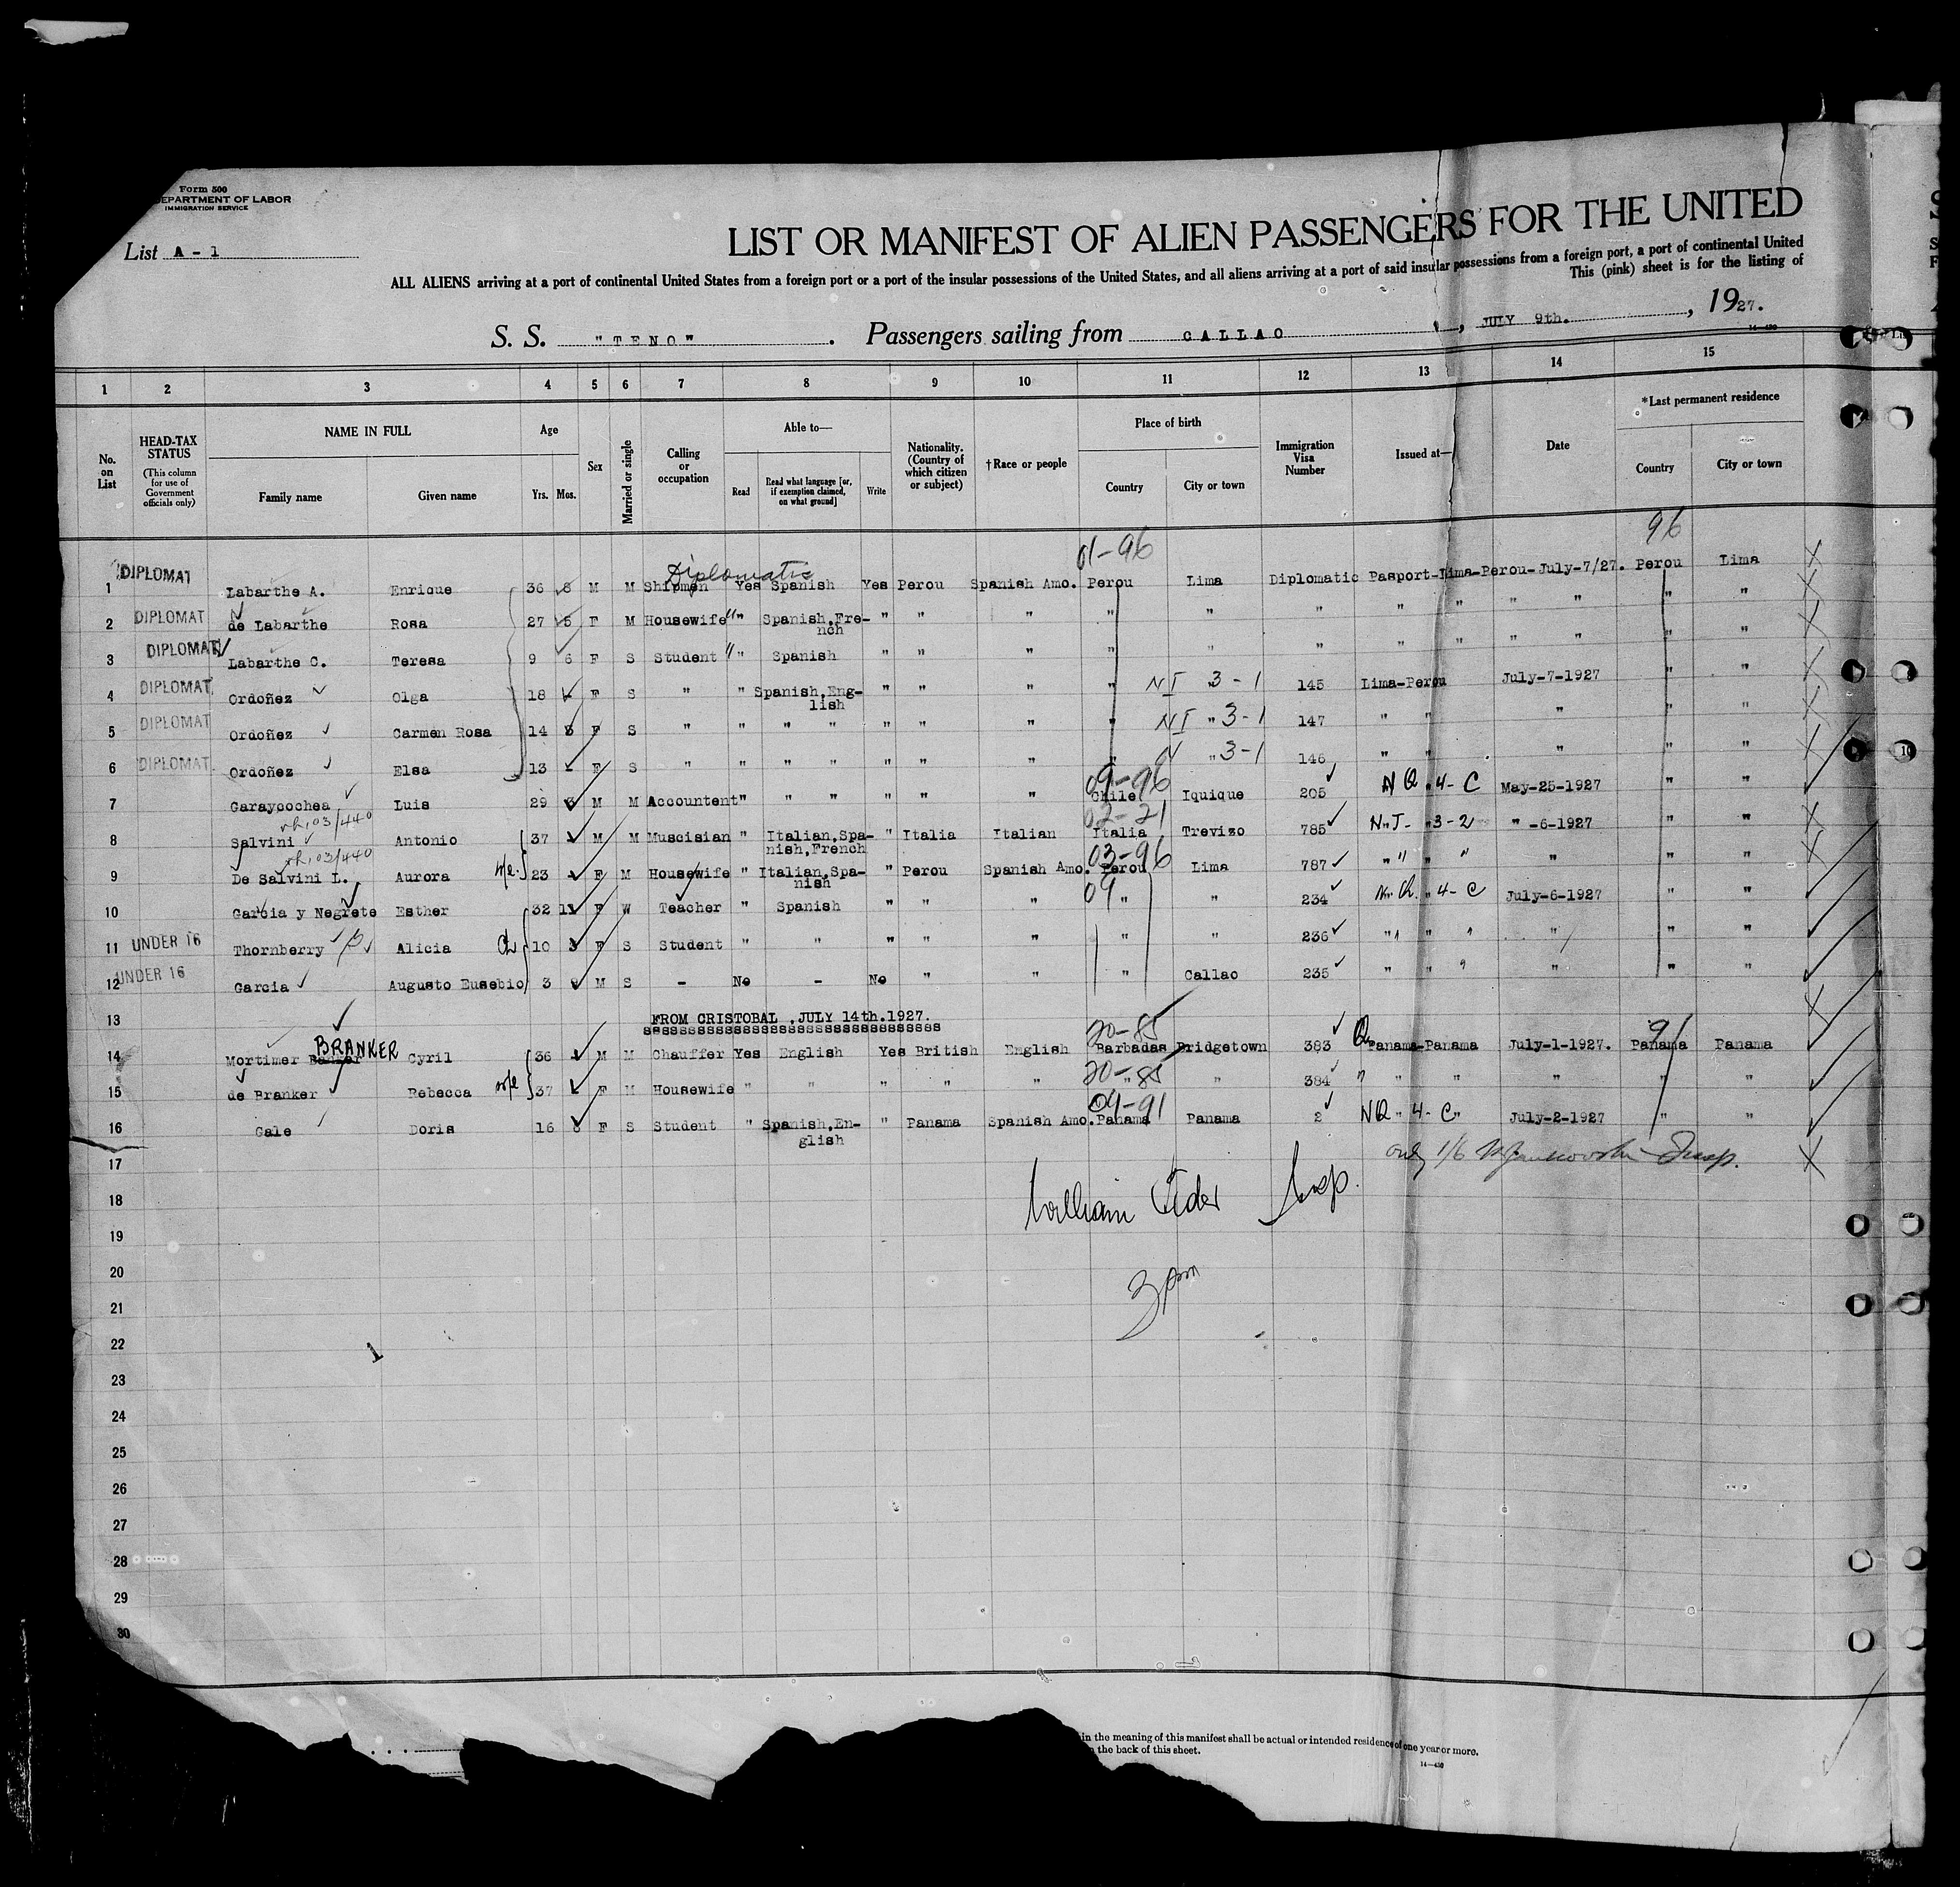 Form 500
DEPARTMENT OF LABOR
IMMIGRATION SERVICE
List A - 1
LIST OR MANIFEST OF ALIEN PASSENGERS FOR THE UNITED
ALL ALIENS arriving at a port of continental United States from a foreign port or a port of the insular possessions of the United States, and all aliens arriving at a port of said insular possessions from a foreign port, a port of continental United
This (pink) sheet is for the listing of
S. S. "TENO". Passengers sailing from CALLAO, JULY 9th., 1927.
14-430
1 2 3 4 5 6 7 8 9 10 11 12 13 14 15
No. on List
HEAD-TAX STATUS (This column for use of Government officials only)
NAME IN FULL
Family name Given name
Age
Yrs. Mos.
Sex
Married or single
Calling or occupation
Able to—
Read Read what language [or, if exemption claimed, on what ground] Write
Nationality. (Country of which citizen or subject)
†Race or people
Place of birth
Country City or town
Immigration Visa Number
Issued at—
Date
*Last permanent residence
Country City or town
01-96 96
Diplomatic
1 DIPLOMAT Labarthe A. Enrique 36 8 M M Shipmen Yes Spanish Yes Perou Spanish Amo. Perou Lima Diplomatic Pasport-Lima-Perou-July-7/27. Perou Lima
2 DIPLOMAT de Labarthe Rosa 27 5 F M Housewife " Spanish,French " " " " " " " " " " " "
3 DIPLOMAT Labarthe C. Teresa 9 6 F S Student " Spanish " " " " " " " " " " " "
4 DIPLOMAT Ordoñez Olga 18 - F S " " Spanish,English " " " " NI 3-1 145 Lima-Perou July-7-1927 " "
5 DIPLOMAT Ordoñez Carmen Rosa 14 3 F S " " " " " " " " NI " 3-1 147 " " " " "
6 DIPLOMAT Ordoñez Elsa 13 - F S " " " " " " " " " 3-1 146 " " " " "
09-96
7 Garaycochea Luis 29 3 M M Accountent " " " " " " Chile Iquique 205 NQ 4-C May-25-1927 " "
02-21
8 Salvini Antonio 37 M M Muscisian " Italian,Spanish,French " Italia Italian Italia Trevizo 785 3-2 " -6-1927 " "
03-96
9 De Salvini L. Aurora 23 - F M Housewife " Italian,Spanish " Perou Spanish Amo. Perou Lima 787 " " " " " "
09
10 Garcia y Negrete Esther 32 11 F W Teacher " Spanish " " " " " 234 4-C July-6-1927 " "
11 UNDER 16 Thornberry Alicia 10 3 F S Student " " " " " " " 236 " " " " " "
12 UNDER 16 Garcia Augusto Eusebio 3 M S - No - No " " " Callao 235 " " " " " "
13 FROM CRISTOBAL ,JULY 14th.1927.
ssssssssssssssssssssssssssssssss
BRANKER 20-85 91
14 Mortimer Banker Cyril 36 M M Chauffer Yes English Yes British English Barbadas Bridgetown 383 Panama-Panama July-1-1927. Panama Panama
20-85
15 de Branker Rebecca 37 F M Housewife " " " " " " " 384 " " " " " "
09-91
16 Gale Doris 16 F S Student " Spanish,English " Panama Spanish Amo. Panama Panama 2 NQ " 4-C " July-2-1927 " "
17 only 1/6 Insp.
18 William Insp.
19
20
3 pm
21
22
1
23
24
25
26
27
28
29
30
in the meaning of this manifest shall be actual or intended residence of one year or more.
the back of this sheet.
14-430